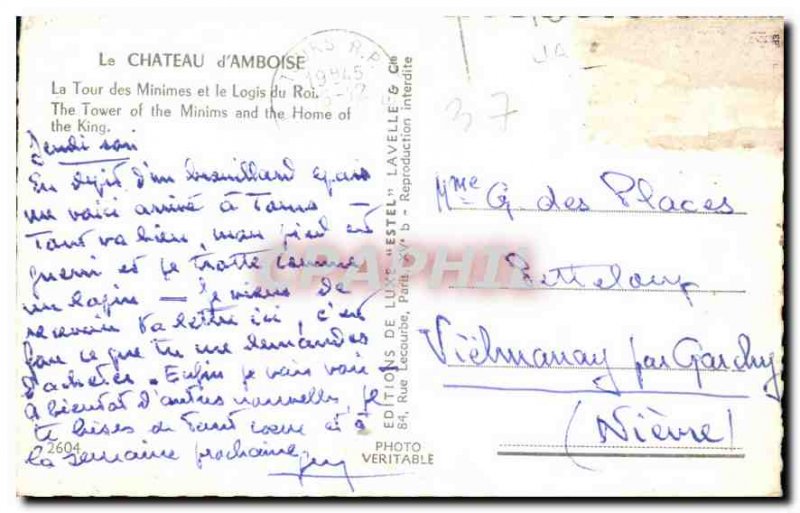 Le CHATEAU d'AMBOISE
La Tour des Minimes et le Logis du Roi.
The Tower of the Minims and the Home of
the King.
Jeudi soir
En dépit d'un brouillard épais
me voici arrivé à Tours —
Tout va bien, mon pied est
guéri et je trotte comme
un lapin — Je viens de
recevoir ta lettre ici, c'est
que tu me demandes
d'acheter. Enfin je vais voir
A bientôt d'autres nouvelles, je
te bises de tout coeur et à
la semaine prochaine
2604
PHOTO
VERITABLE
EDITIONS DE LUXE "ESTEL" LAVELLE & Cie
84, Rue Lecourbe, Paris XVe b - Reproduction interdite
TOURS R.P.
19H45
37
Mme G. des Places
Vielmanay par Garchy
(Nièvre)
CPAPHIL